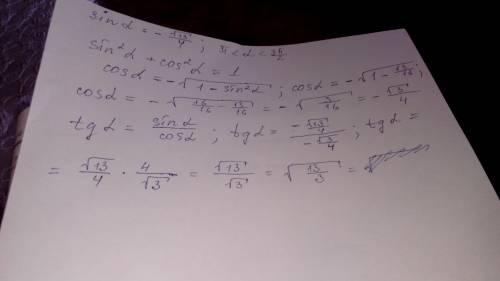 sin α = - √13/4 ; π < α < 3π/2
sin²α + cos²α = 1
cos α = - √(1 - sin²α) ; cos α = - √(1 - 13/16) ;
cos α = - √(16/16 - 13/16) = - √(3/16) = - √3/4
tg α = sin α/cos α ; tg α = (- √13/4)/(- √3/4) ; tg α =
= √13/4 · 4/√3 = √13/√3 = √(13/3) =